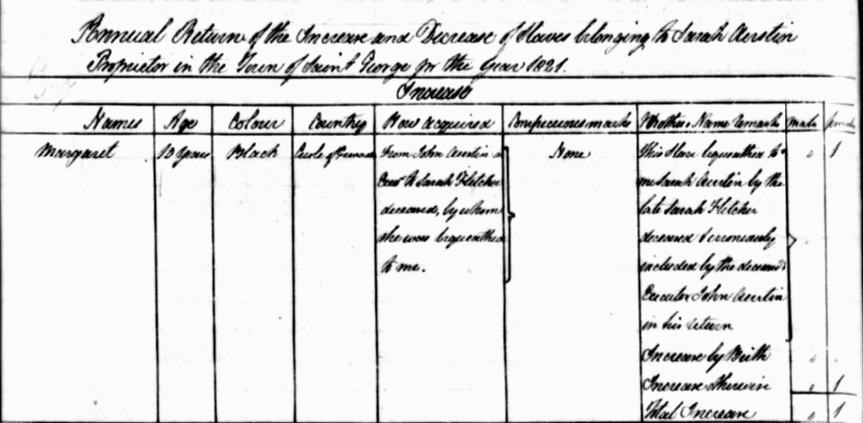 Annual Return of the Increase and Decrease of Slaves belonging to Sarah Austin
Proprietor in the Town of Saint George for the Year 1821.
Increase
Names Age Colour Country How acquired Conspicuous marks Mothers Name & Remarks Male
Margaret 10 Years Black Creole of From John Austin None This Slave bequeathed to " 1
to Sarah Fletcher me Sarah Austin by the
deceased, by whom late Sarah Fletcher
she was bequeathed deceased & erroneously
to me. included by the deceased's
Executor John Austin
in his return
Increase by Birth " "
Increase otherwise " 1
Total Increase " 1